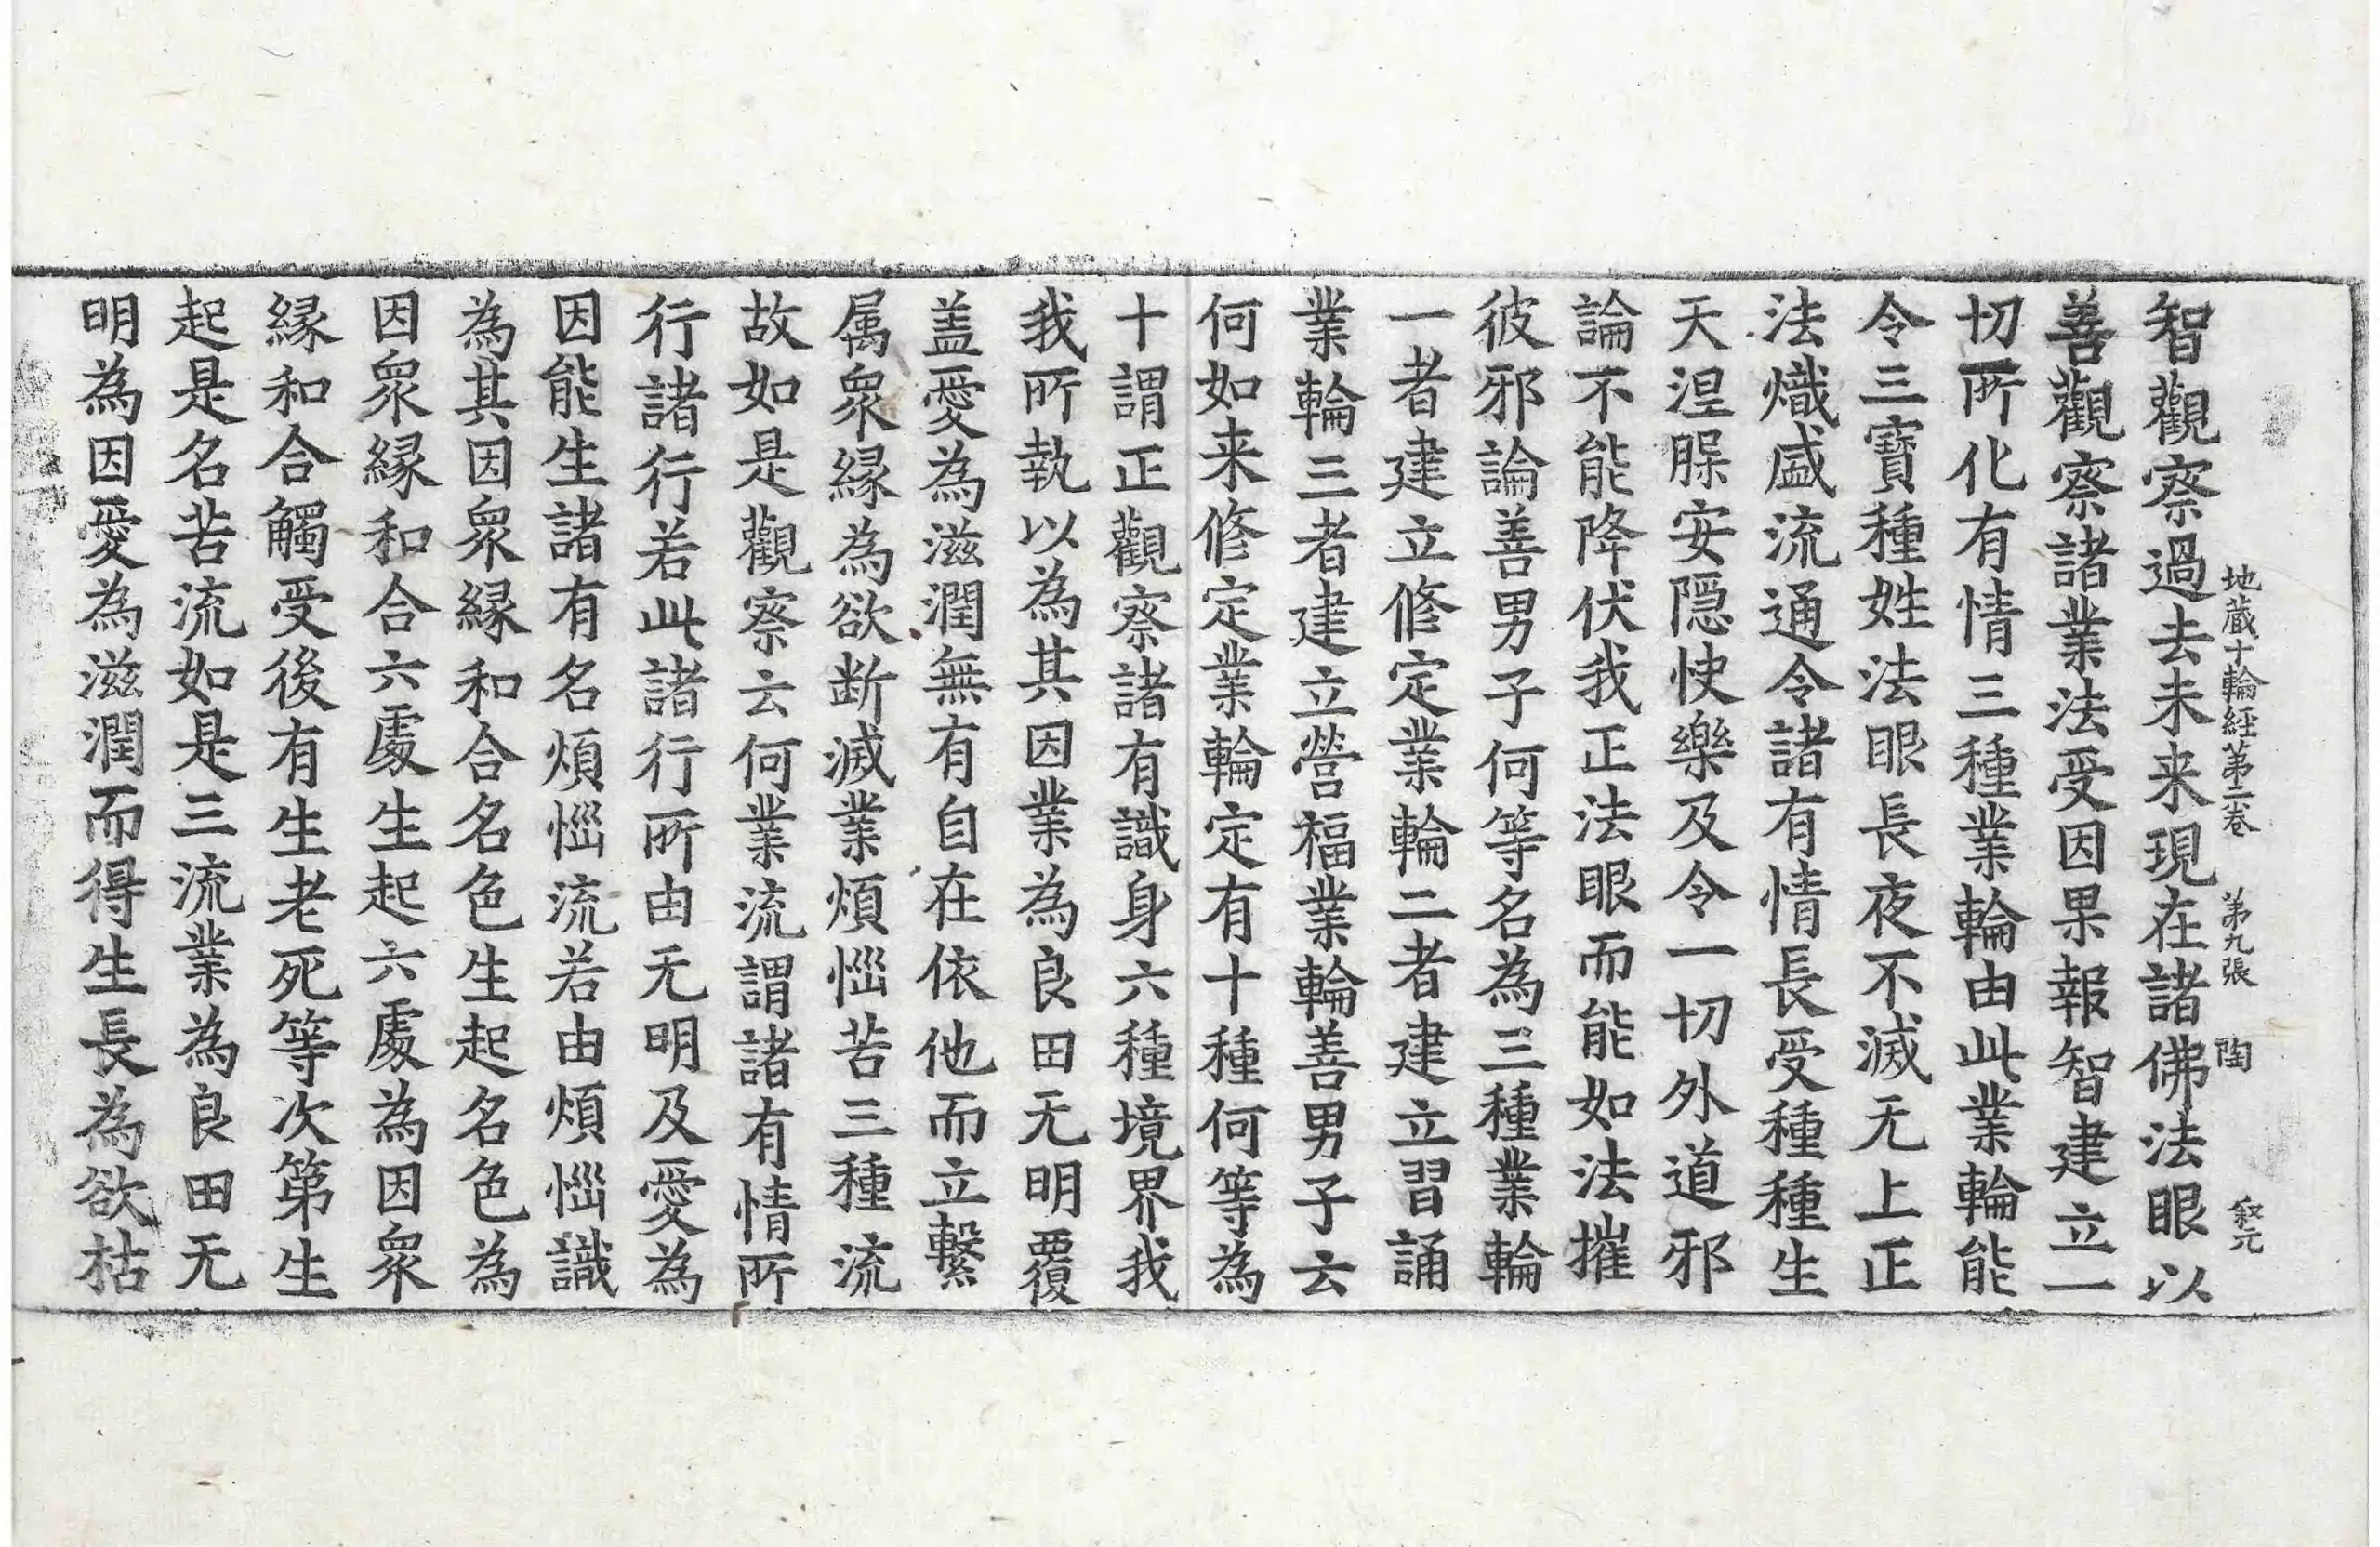 地蔵十輪経第二巻　第九張　陶　叙元
智觀察過去未来現在諸佛法眼以
善觀察諸業法受因果報智建立一
切所化有情三種業輪由此業輪能
令三寶種姓法眼長夜不滅无上正
法熾盛流通令諸有情長受種種生
天涅槃安隠快樂及令一切外道邪
論不能降伏我正法眼而能如法摧
彼邪論善男子何等名為三種業輪
一者建立修定業輪二者建立習誦
業輪三者建立營福業輪善男子云
何如来修定業輪定有十種何等為
十謂正觀察諸有識身六種境界我
我所執以為其因業為良田无明覆
盖愛為滋潤無有自在依他而立繫
属衆縁為欲断滅業煩惱苦三種流
故如是觀察云何業流謂諸有情所
行諸行若此諸行所由无明及愛為
因能生諸有名煩惱流若由煩惱識
為其因衆縁和合名色生起名色為
因衆縁和合六處生起六處為因衆
縁和合觸受後有生老死等次第生
起是名苦流如是三流業為良田无
明為因愛為滋潤而得生長為欲枯